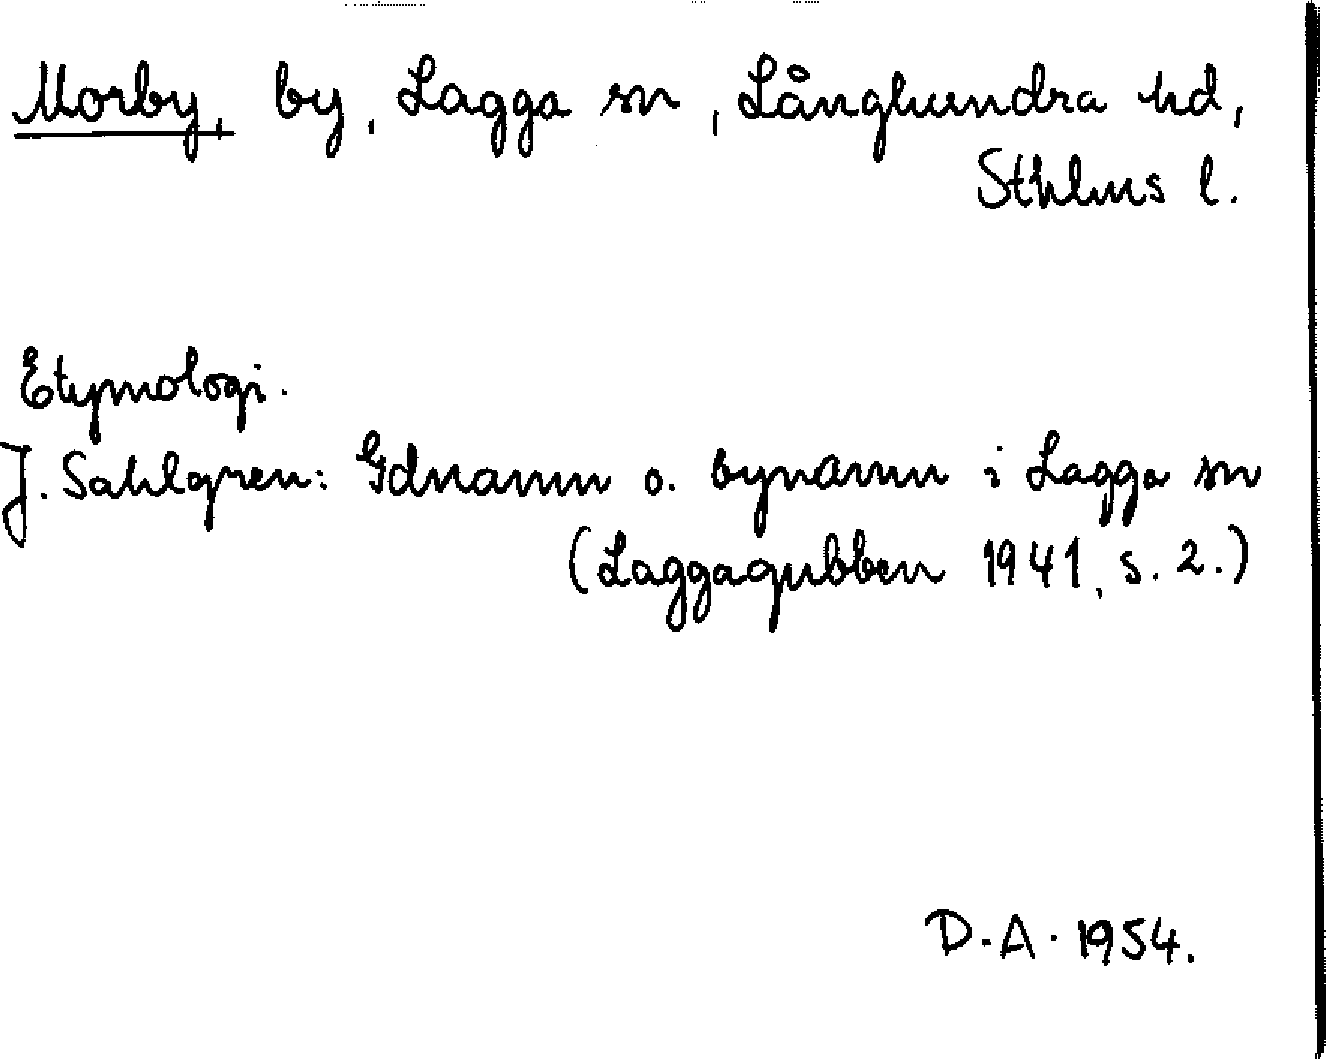 Morby, by, Lagga sn, Långhundra hd,
Sthlms l.
Etymologi.
J. Sahlgren: Gdnamn o. bynamn i Lagga sn
(Laggagubben 1941, s. 2.)
D.A. 1954.